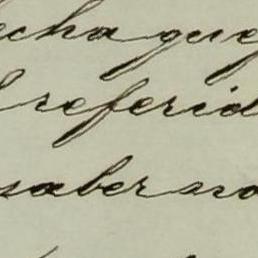 echa que
l referid
saber no